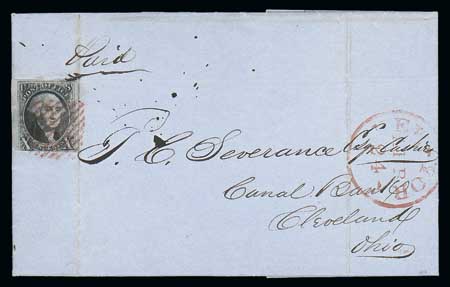 Paid
T. C. Severance Esqr Cashier
Canal Bank
Cleveland
Ohio